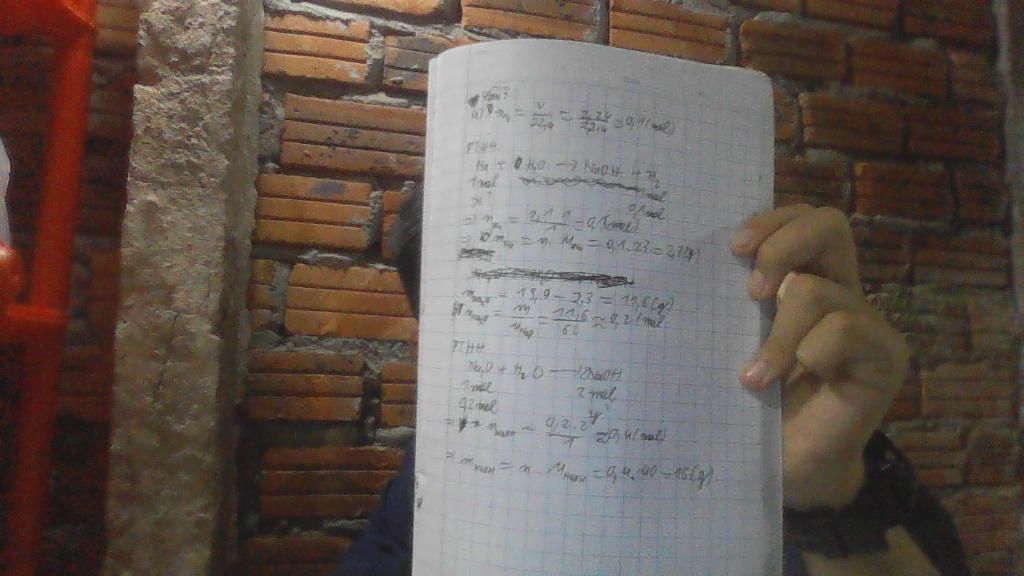 a) n = V/22,4 = 2,24/22,4 = 0,1 (mol)
PTHH
Na + H2O → NaOH + H2
1mol mol
x 0,1mol
=> n = 0,1.1/1 = 0,1 (mol)
=> mNa = n . MNa = 0,1.23 = 2,3(g)
mNa2O = 13,9 - 2,3 = 11,6(g)
nNa2O = m/MNa2O = 11,6/62 ≈ 0,2 (mol
PTHH
Na2O + H2O → 2NaOH
1mol 2 mol
0,2mol y
=> nNaOH = 0,2.2/1 ≈ 0,4 (mol)
=> mNaOH = n . MNaOH = 0,4.40 = 16(g)